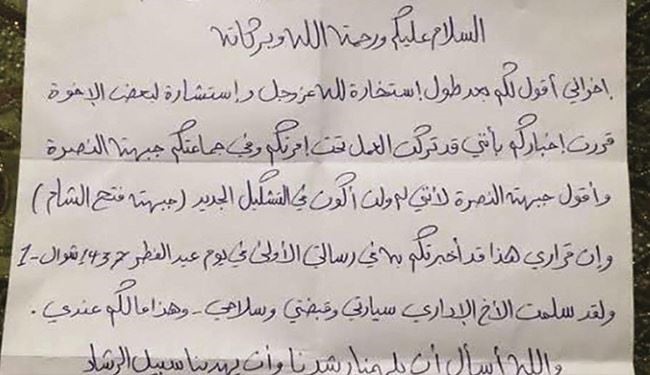 السلام عليكم ورحمة الله وبركاته
إخواني أقول لكم بعد طول إستخارة لله عز وجل وإستشارة لبعض الإخوة
قررت إخباركم بأنني قد تركت العمل تحت إمرتكم وفي جماعتكم جبهة النصرة
وأقول جبهة النصرة لأنني لم ولن أكون في التشكيل الجديد (جبهة فتح الشام)
وإن قراري هذا قد أخبرتكم به في رسالتي الأولى في يوم عيد الفطر 1437 شوال-1
ولقد سلمت الأخ الإداري سيارتي وقبضتي وسلاحي - وهذا مالكم عندي .
والله أسأل أن يلهمنا رشدنا وأن يهدينا سبيل الرشاد